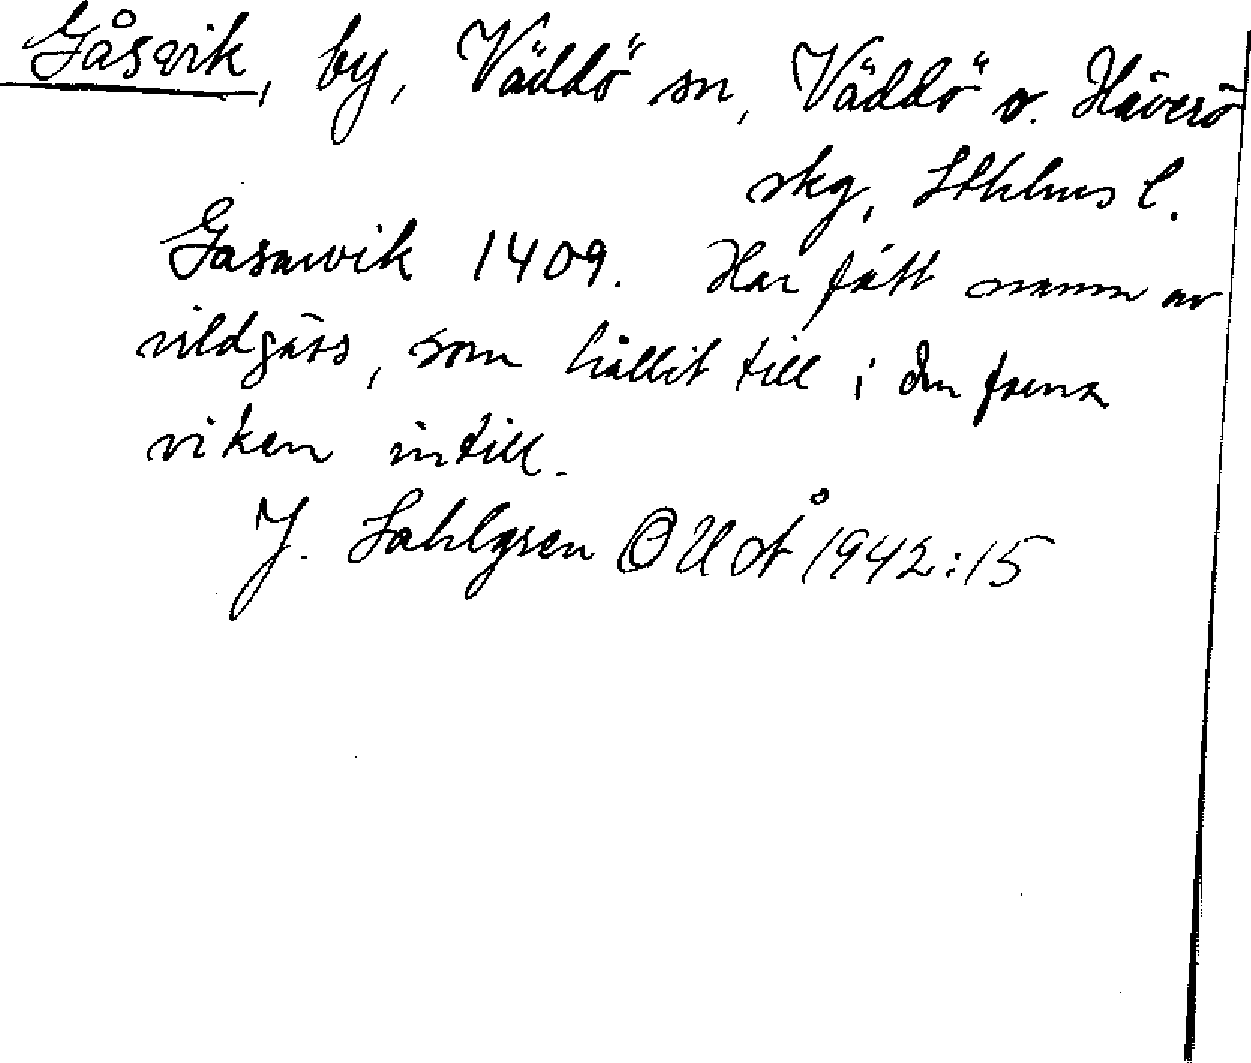 Gåsvik, by, Väddö sn, Väddö o. Häverö
skg, Sthlms l.
Gasawik 1409. Har fått namn av
vildgäss, som hållit till i den forna
viken intill.
J. Sahlgren OUÅ 1942:15